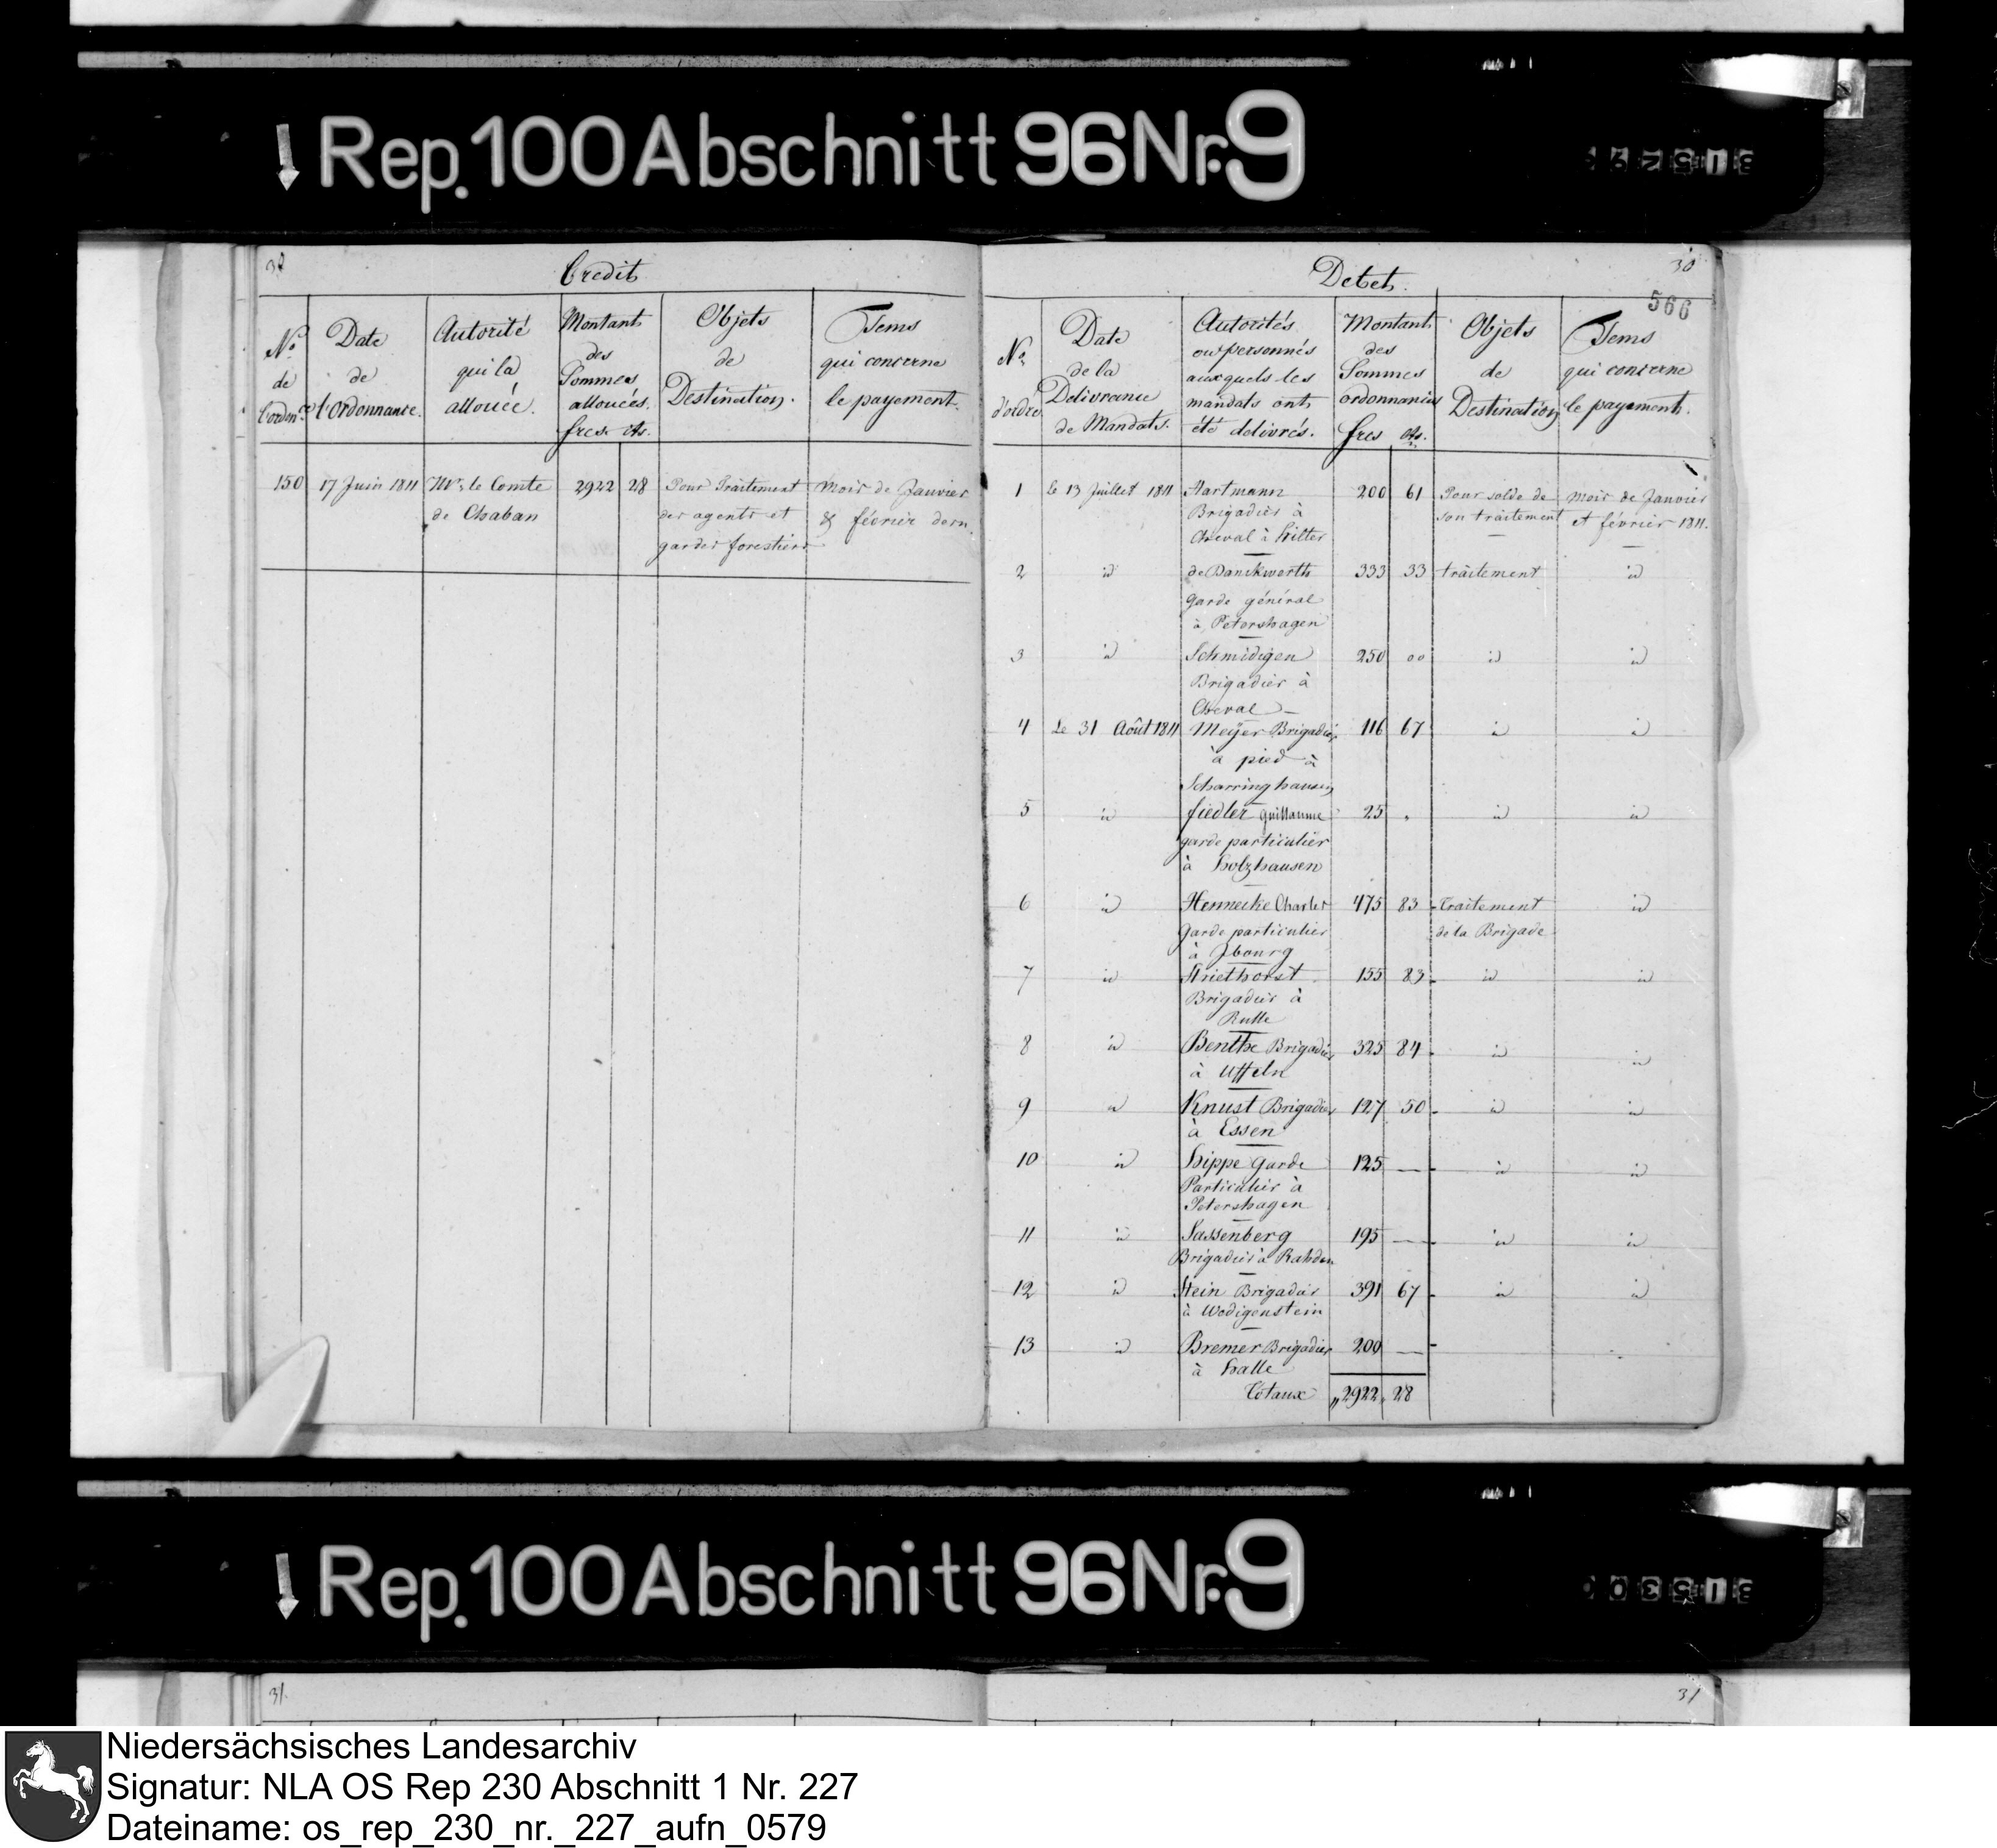 Rep. 100 Abschnitt 96 Nr. 9
Credit
No. de l'ordon.ce
Date de l'Ordonnance.
Autorité qui la allouée.
Montant des Sommes allouées. frcs. cts.
Objets de Destination.
Tems qui concerne le payement.
150 17 Juin 1811 Mr. le Comte 2922 28 Pour Traitement Mois de Janvier
de Chaban des agents et & février dern.
gardes forestiers
30
Debet.
566
No. d'ordre
Date de la Delivrance de Mandats.
Autorités ou personnés auxquels les mandats ont été delivrés.
Montant des Sommes ordonnancées frcs cts.
Objets de Destination
Tems qui concerne le payement.
1 le 13 Juillet 1811 Hartmann 200 61 Pour solde de Mois de Janvier
Brigadier à son traitement et février 1811.
Cheval à Hilter
2 id de Danckwerth 333 33 traitement id
Garde général
à Petershagen
3 id Schmidigen 250 00 id id
Brigadier à
Cheval
4 Le 31 Août 1811 Meÿer Brigadier 116 67 id id
à pied à
Scharringhausen
5 id fiedler Guillaume 25 " id id
garde particulier
à Holzhausen
6 id Hennecke Charles 475 83 Traitement id
Garde particulier de la Brigade
à Jbourg
7 id Striethorst 155 83 id id
Brigadier à
Rulle
8 id Benthe Brigadier 325 84 id id
à Uffeln
9 id Knust Brigadier 127 50 id id
à Essen
10 id Hippe Garde 125 — id id
Particulier à
Petershagen
11 id Sassenberg 195 — id id
Brigadier à Rahden
12 id Stein Brigadier 391 67 id id
à Wedigenstein
13 id Bremer Brigadier 200 —
à Halle
Totaux „2922„ 28
Rep. 100 Abschnitt 96 Nr. 9
31.
31
Niedersächsisches Landesarchiv
Signatur: NLA OS Rep 230 Abschnitt 1 Nr. 227
Dateiname: os_rep_230_nr._227_aufn_0579